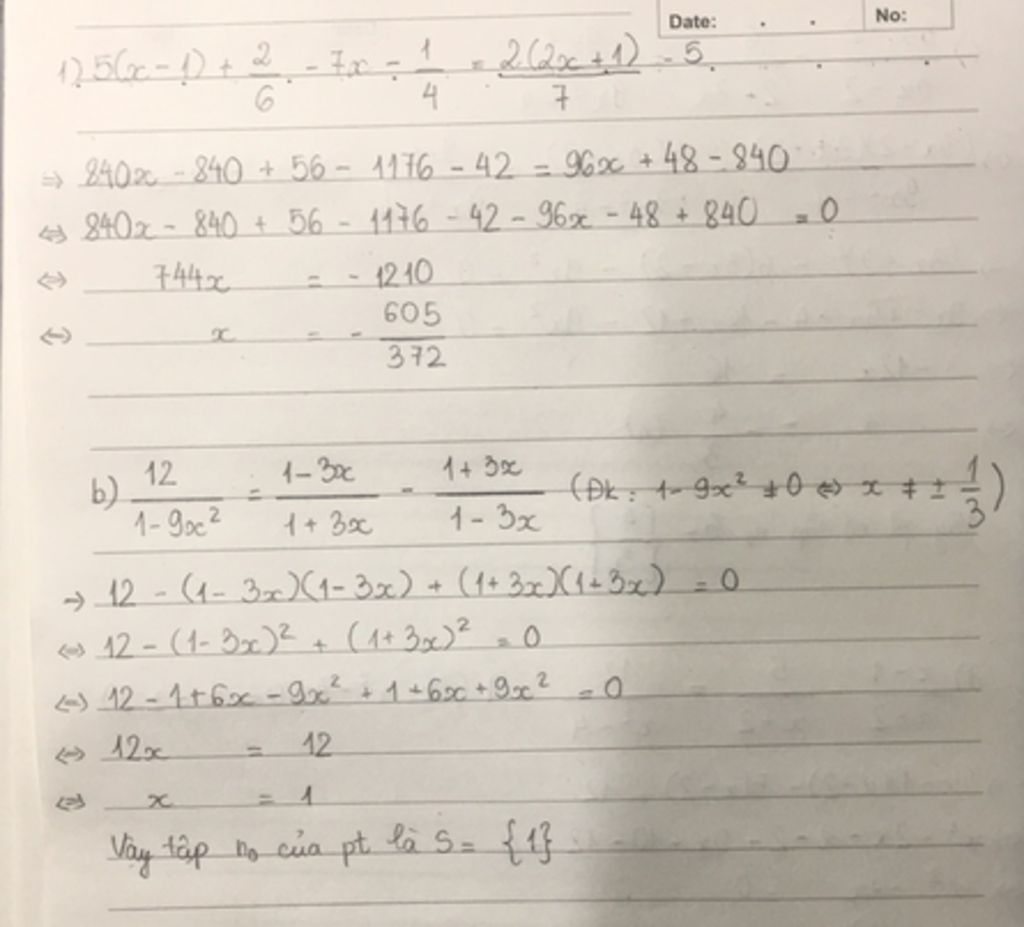 Date: . . No:
1) 5(x - 1) + 2/6 - 7x - 1/4 = 2(2x + 1)/7 - 5
=> 840x - 840 + 56 - 1176 - 42 = 96x + 48 - 840
<=> 840x - 840 + 56 - 1176 - 42 - 96x - 48 + 840 = 0
<=> 744x = - 1210
<=> x = - 605/372
b) 12/(1 - 9x²) = (1 - 3x)/(1 + 3x) - (1 + 3x)/(1 - 3x) (Đk: 1 - 9x² ≠ 0 <=> x ≠ ± 1/3)
=> 12 - (1 - 3x)(1 - 3x) + (1 + 3x)(1 + 3x) = 0
<=> 12 - (1 - 3x)² + (1 + 3x)² = 0
<=> 12 - 1 + 6x - 9x² + 1 + 6x + 9x² = 0
<=> 12x = 12
<=> x = 1
Vậy tập no của pt là S = {1}